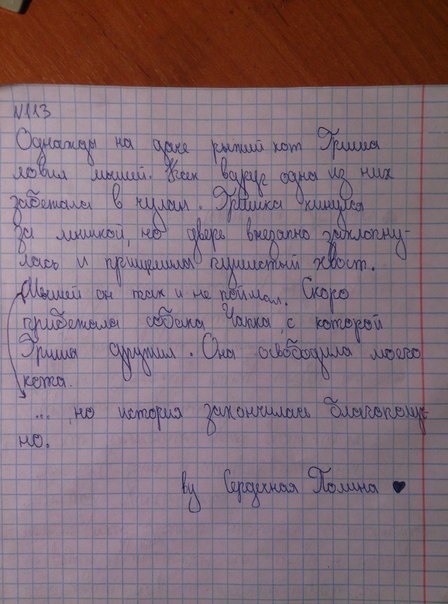 N113
Однажды на даче рыжий кот Гриша
ловил мышей. Как вдруг одна из них
забежала в чулан. Гришка кинулся
за мышкой, но дверь внезапно захлопну-
лась и прищемила пушистый хвост.
Мышей он так и не поймал. Скоро
прибежала собака Чапка, с которой
Гриша дружил. Она освободила моего
кота.
... но история закончилась благополуч-
но.
by Сердечная Полина